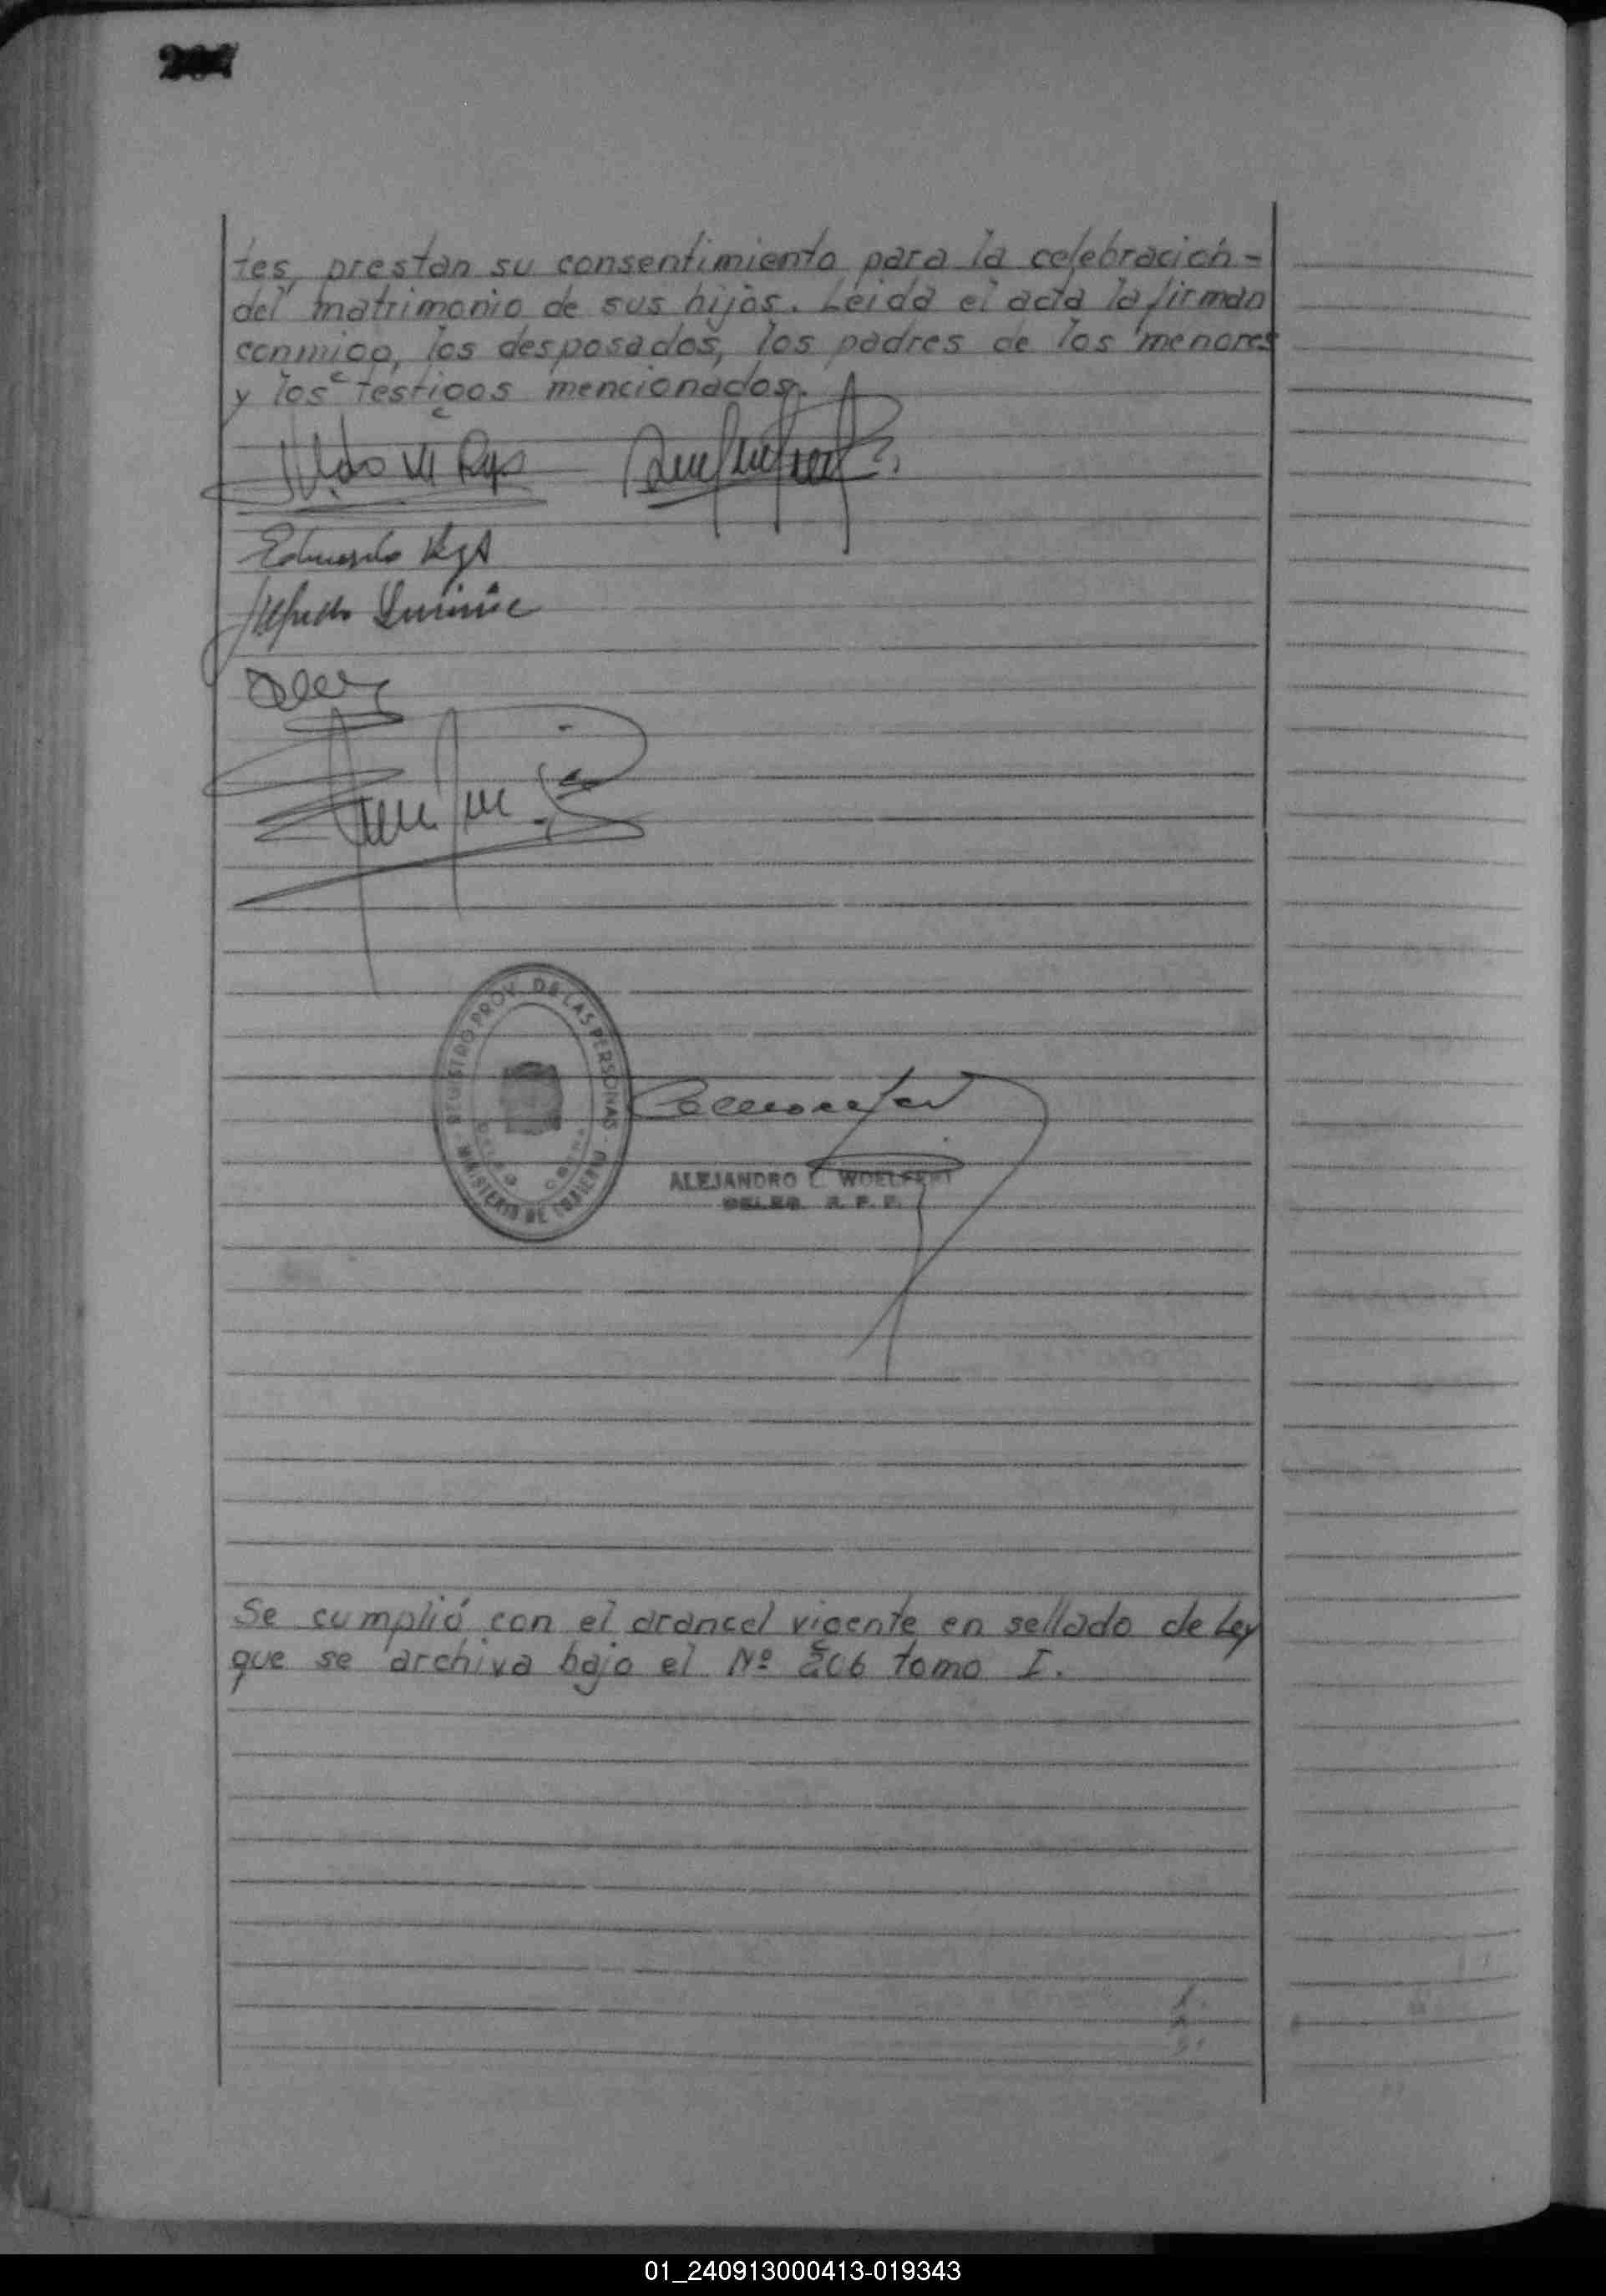 tes, prestan su consentimiento para la celebración-
del matrimonio de sus hijos. Leida el acta la firman
conmigo, los desposados, los padres de los menores
y los testigos mencionados.
Eduardo
Alfredo
REGISTRO PROV. DE LAS PERSONAS
MINISTERIO DE GOBIERNO
ALEJANDRO L. WOELFERT
DELEG. R. P. P.
Se cumplió con el arancel vigente en sellado de Ley
que se archiva bajo el Nº 206 tomo I.
01_240913000413-019343